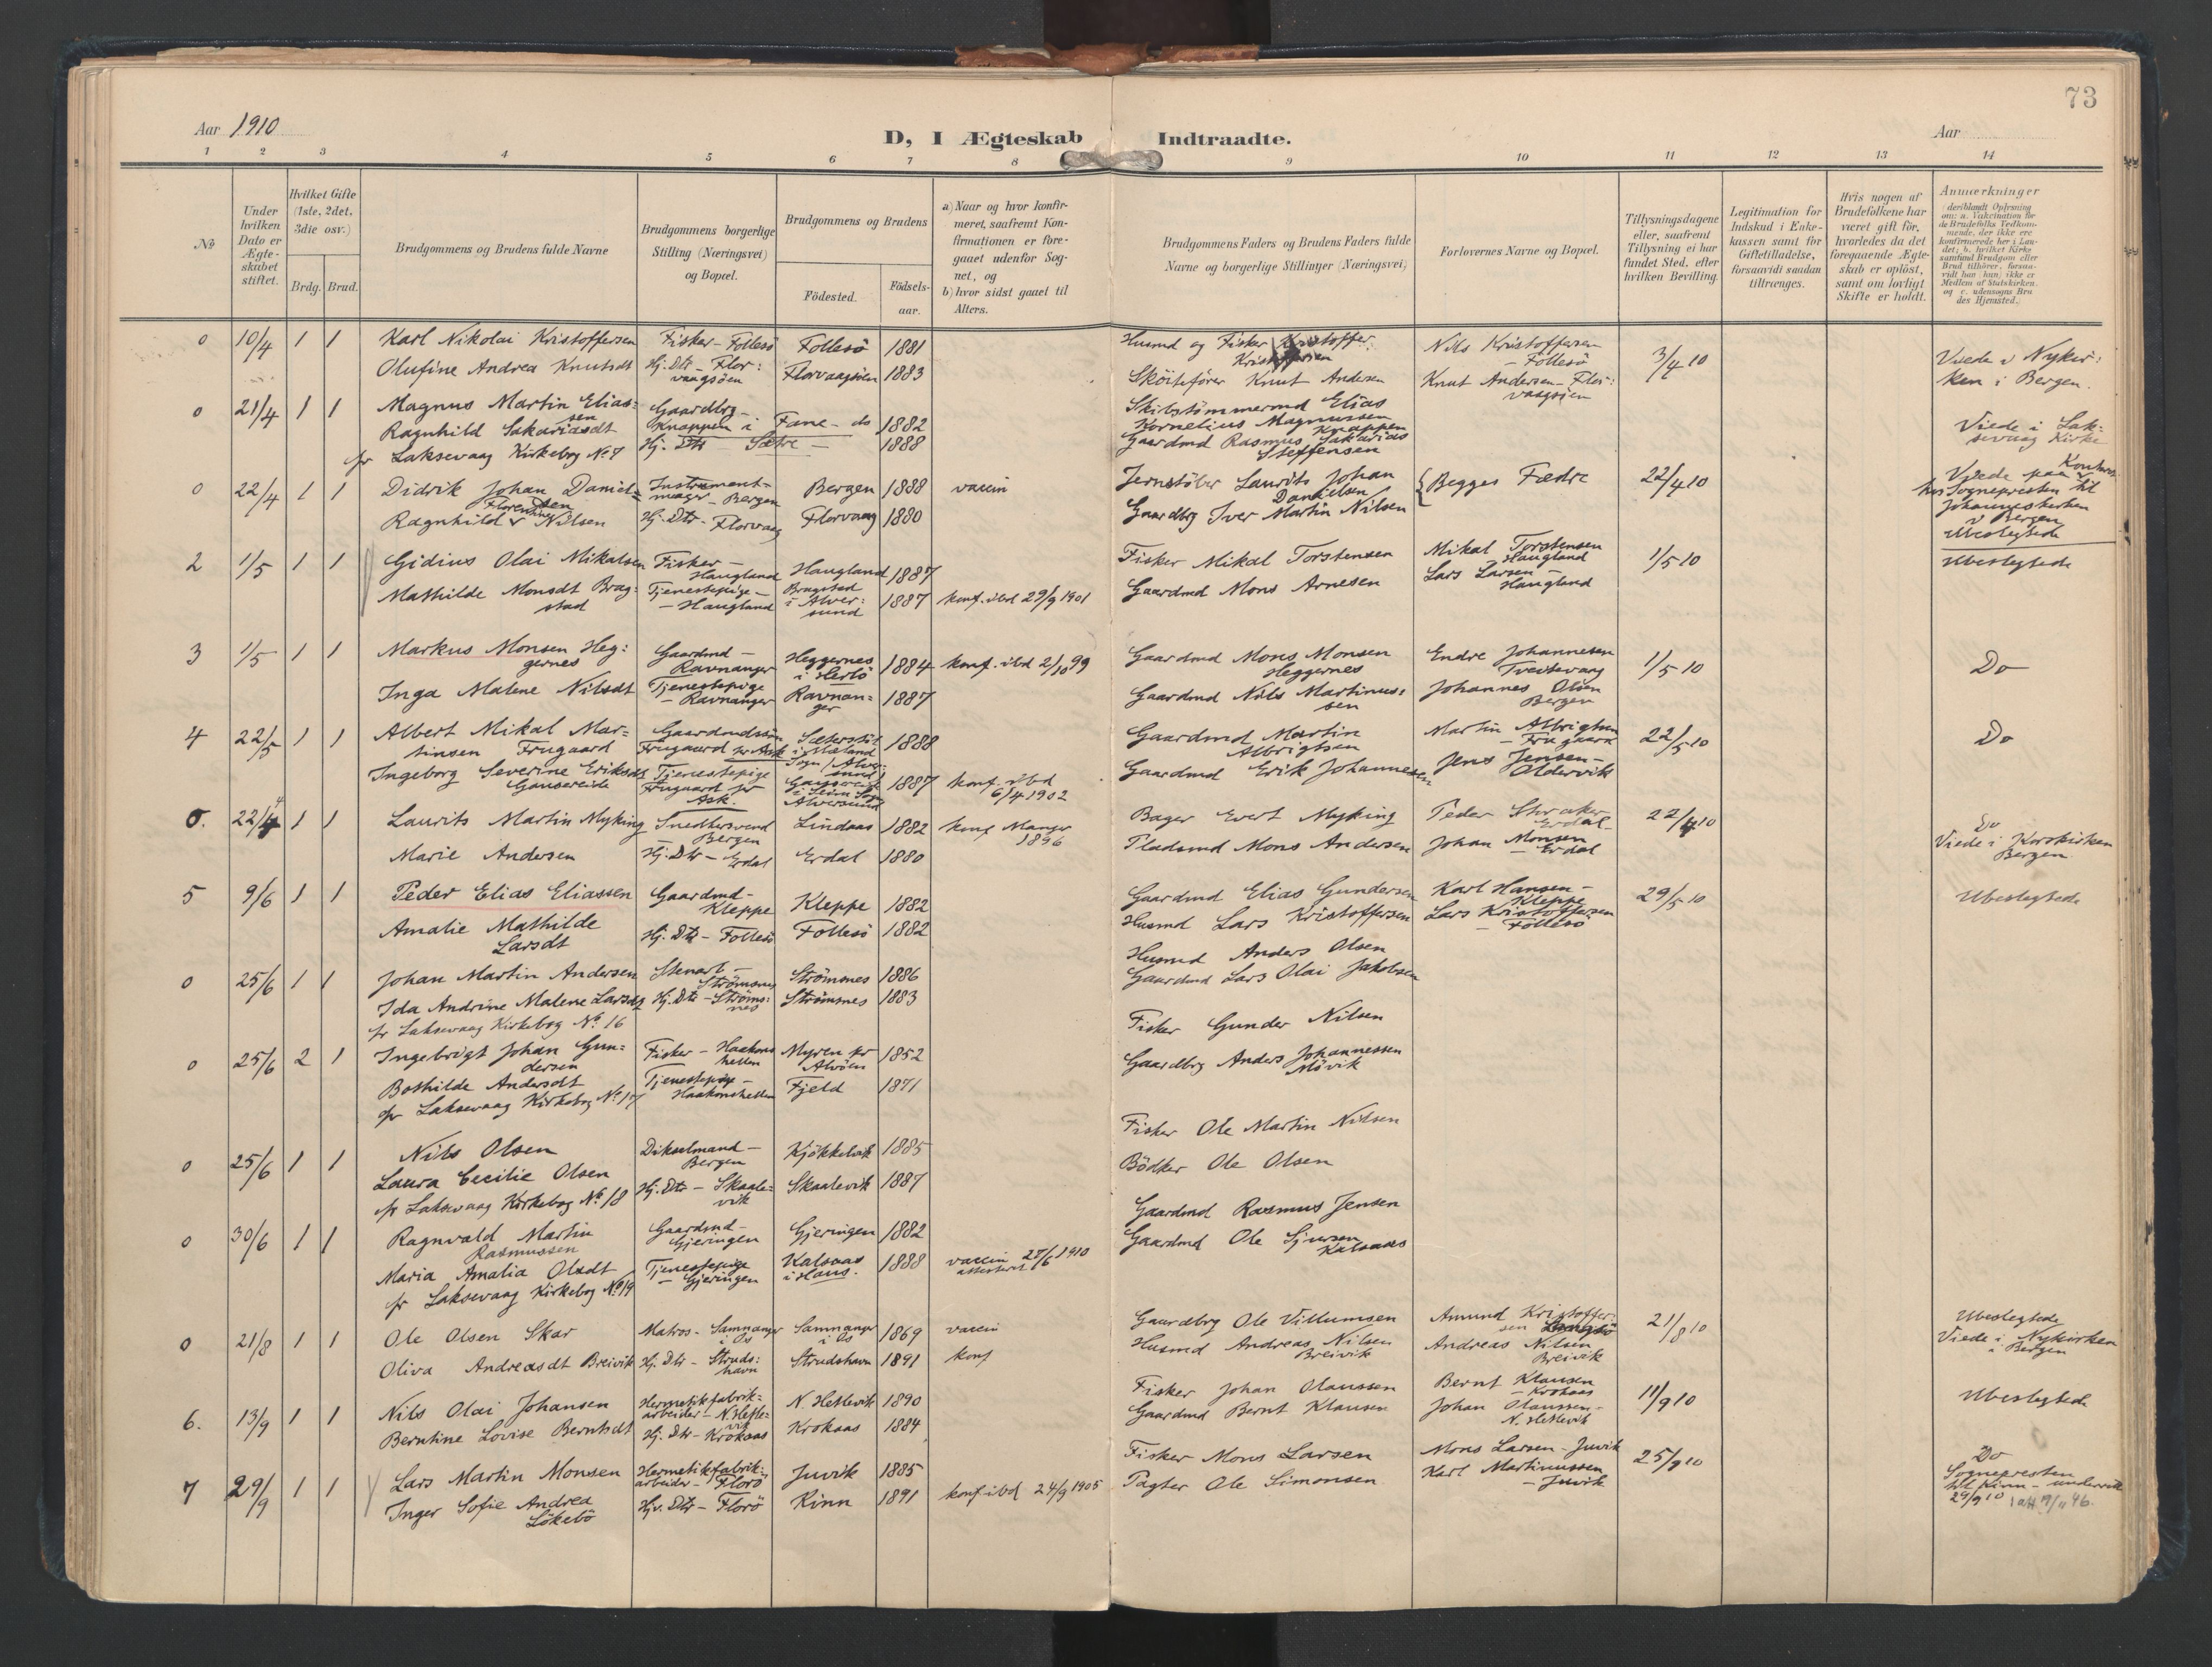 73
Aar 1910
D, I Ægteskab Indtraadte.
Aar
1 2 3 4 5 6 7 8 9 10 11 12 13 14
No
Under hvilken Dato er Ægteskabet stiftet.
Hvilket Gifte (1ste, 2det, 3die osv.)
Brdg. Brud.
Brudgommens og Brudens fulde Navne
Brudgommens borgerlige Stilling (Næringsvei) og Bopæl.
Brudgommens og Brudens
Födested.
Födsels-aar.
a) Naar og hvor konfirmeret, saafremt Konfirmationen er foregaaet udenfor Sognet, og
b) hvor sidst gaaet til Alters.
Brudgommens Faders og Brudens Faders fulde Navne og borgerlige Stillinger (Næringsvei)
Forlovernes Navne og Bopæl.
Tillysningsdagene eller, saafremt Tillysning ei har fundet Sted, efter hvilken Bevilling.
Legitimation for Indskud i Enkekassen samt for Giftetilladelse, forsaavidt saadan tiltrænges.
Hvis nogen af Brudefolkene har været gift för, hvorledes da det foregaaende Ægteskab er oplöst, samt om lovligt Skifte er holdt.
Anmærkninger
(deriblandt Oplysning om: a. Vakcination for de Brudefolks Vedkommende, der ikke ere konfirmerede her i Landet; b. hvilket Kirkesamfund Brudgom eller Brud tilhörer, forsaavidt han (hun) ikke er Medlem af Statskirken, og c. udensogns Brudes Hjemsted.)
0 10/4 1 1 Karl Nikolai Kristoffersen Fisker - Follesö Follesö 1881 Husmd og Fisker Kristoffer Kristoffersen Nils Kristoffersen - Follesö 3/4 10 Viede i Nykir:
Olufine Andrea Knutsdt Hj. Dtr - Flor: vaagsöen Florvaagsöen 1883 Sköitefórer Knut Andersen Knut Andersen - Flor: vaagsöen ken i Bergen.
0 21/4 1 1 Magnus Martin Elias: sen Gaardbr - Knappen i Fane - ds 1882 Skibstömmermd Elias Kornelius Magnussen Knappen Viede i Lak-
Ragnhild Sakariasdt Hj. Dtr Sætre - 1888 Gaardmd Rasmus Sakarias Steffensen sevaag Kirke
fr Laksevaag Kirkebog No 7
0 22/4 1 1 Didrik Johan Daniel= sen Instrument= mager - Bergen Bergen 1888 vaccin Jernstöber Laurits Johan Danielsen { Begges Fædre 22/4 10 Viede paa Kontoret hos Sognepresten til Johanneskirken i Bergen
Ragnhild Florentine Nilsen Hj. Dtr - Florvaag Florvaag 1880 Gaardbrg Iver Martin Nilsen Ubeslegtede
2 1/5 1 1 Gidius Olai Mikalsen Fisker - Haugland Haugland 1887 Fisker Mikal Torstensen Mikal Torstensen Haugland 1/5 10 Ubeslegtede
Mathilde Monsdt Brag: stad Tjenestepige - Haugland Bragstad i Alver: sund 1887 konf. ibd 29/9 1901 Gaardmd Mons Arnesen Lars Larsen - Haugland
3 1/5 1 1 Markus Monsen Heg: gernes Gaardmd - Ravnanger Heggernes i Herlö 1884 konf. ibd 2/10 99 Gaardmd Mons Monsen Heggernes Endre Johannesen Tveitevaag 1/5 10 Do
Inga Malene Nilsdt Tjenestepige - Ravnanger Ravnan= ger 1887 Gaardmd Nils Martinus: sen Johannes Olsen Bergen
4 22/5 1 1 Albert Mikal Mar= tinsen Frugaard Gaardmdssön Frugaard pr Ask Sæterstöl i Mæland Sogn (Alver sund) 1888 Gaardmd Martin Albrigtsen Martin Albrigtsen - Frugaard 22/5 10 Do
Ingeborg Severine Eriksdt Gausereide Tjenestepige Frugaard pr Ask. Gausereide i Seim Sogn Alversund 1887 konf. ibd 6/4 1902 Gaardmd Erik Johannesen Jens Jensen - Oldervik
0. 22/4 1 1 Laurits Martin Myking Snedkersvend Bergen Lindaas 1882 konf Manger 1896 Bager Evert Myking Peder Storaker Erdal - 22/4 10 Do
Marie Andersen Hj. Dtr - Erdal Erdal 1880 Pladsmd Mons Andersen Johan Monsen - Erdal Viede i Korskirken Bergen
5 9/6 1 1 Peder Elias Eliassen Gaardmd - Kleppe Kleppe 1882 Gaardmd Elias Gundersen Karl Hansen - Kleppe 29/5 10 Ubeslegtede
Amalie Mathilde Larsdt Hj. Dtr - Follesö Follesö 1882 Husmd Lars Kristoffersen Lars Kristoffersen - Follesö
0 25/6 1 1 Johan Martin Andersen Stenarb - Strömsnes Strömsnes 1886 Husmd Anders Olsen
Ida Andrine Malene Larsdt Hj. Dtr - Ströms: nes Strömsnes 1883 Gaardmd Lars Olai Jakobsen
fr Laksevaag Kirkebog No 16
0 25/6 2 1 Ingebrigt Johan Gun= dersen Fisker - Haakons hellen Myren pr Alvöen 1852 Fisker Gunder Nilsen
Bothilde Andersdt Tjenestepige - Haakonshellen Fjeld 1871 Gaardbrg Anders Johannessen Mövik
fr Laksevaag Kirkebog No 17
0 25/6 1 1 Nils Olsen Dikselmand - Bergen Kjökkelvik 1885 Fisker Ole Martin Nilsen
Laura Cecilie Olsen Hj. Dtr - Skaale= vik Skaalevik 1887 Bödker Ole Olsen
fr Laksevaag Kirkebog No 18
0 30/6 1 1 Ragnvald Martin Rasmussen Gaardmd - Gjeringen Gjeringen 1882 Gaardmd Rasmus Jensen
Maria Amalia Olsdt Tjenestepige - Gjeringen Kalsaas i Haus. 1888 vaccin attesteret 27/6 1910 Gaardmd Ole Sjursen Kalsaas
fr Laksevaag Kirkebog No 19
0 21/8 1 1 Ole Olsen Skar Matros - Samnanger i Os Samnanger i Os 1869 vaccin Gaardbrg Ole Villumsen Amund Kristoffer: sen 21/8 10 Ubeslegtede
Oliva Andreasdt Breivik Hj. Dtr - Struds: havn Strudshavn 1891 konf Husmd Andreas Nilsen Breivik Andreas Nilsen Breivik Viede i Nykirken i Bergen
6. 13/9 1 1 Nils Olai Johansen Hermetikfabrik= arbeider - N. Hetle= vik N. Hetlevik 1890 Fisker Johan Olaussen Bernt Klausen - Krokaas 11/9 10 Ubeslegtede
Berntine Lovise Berntsdt Hj. Dtr - Krokaas Krokaas 1884 Gaardmd Bernt Klausen Johan Olaussen - N. Hetlevik
7 29/9 1 1 Lars Martin Monsen Hermetikfabrik: arbeider - Florö Juvik 1885 Fisker Mons Larsen Mons Larsen - Juvik 25/9 10 Do
Inger Sofie Andrea Lökebö Hj. Dtr - Florö Kinn 1891 konf ibd 24/9 1905 Pagter Ole Simonsen Karl Martinussen - Juvik Sognepresten til Kinn - underrett 29/9 10